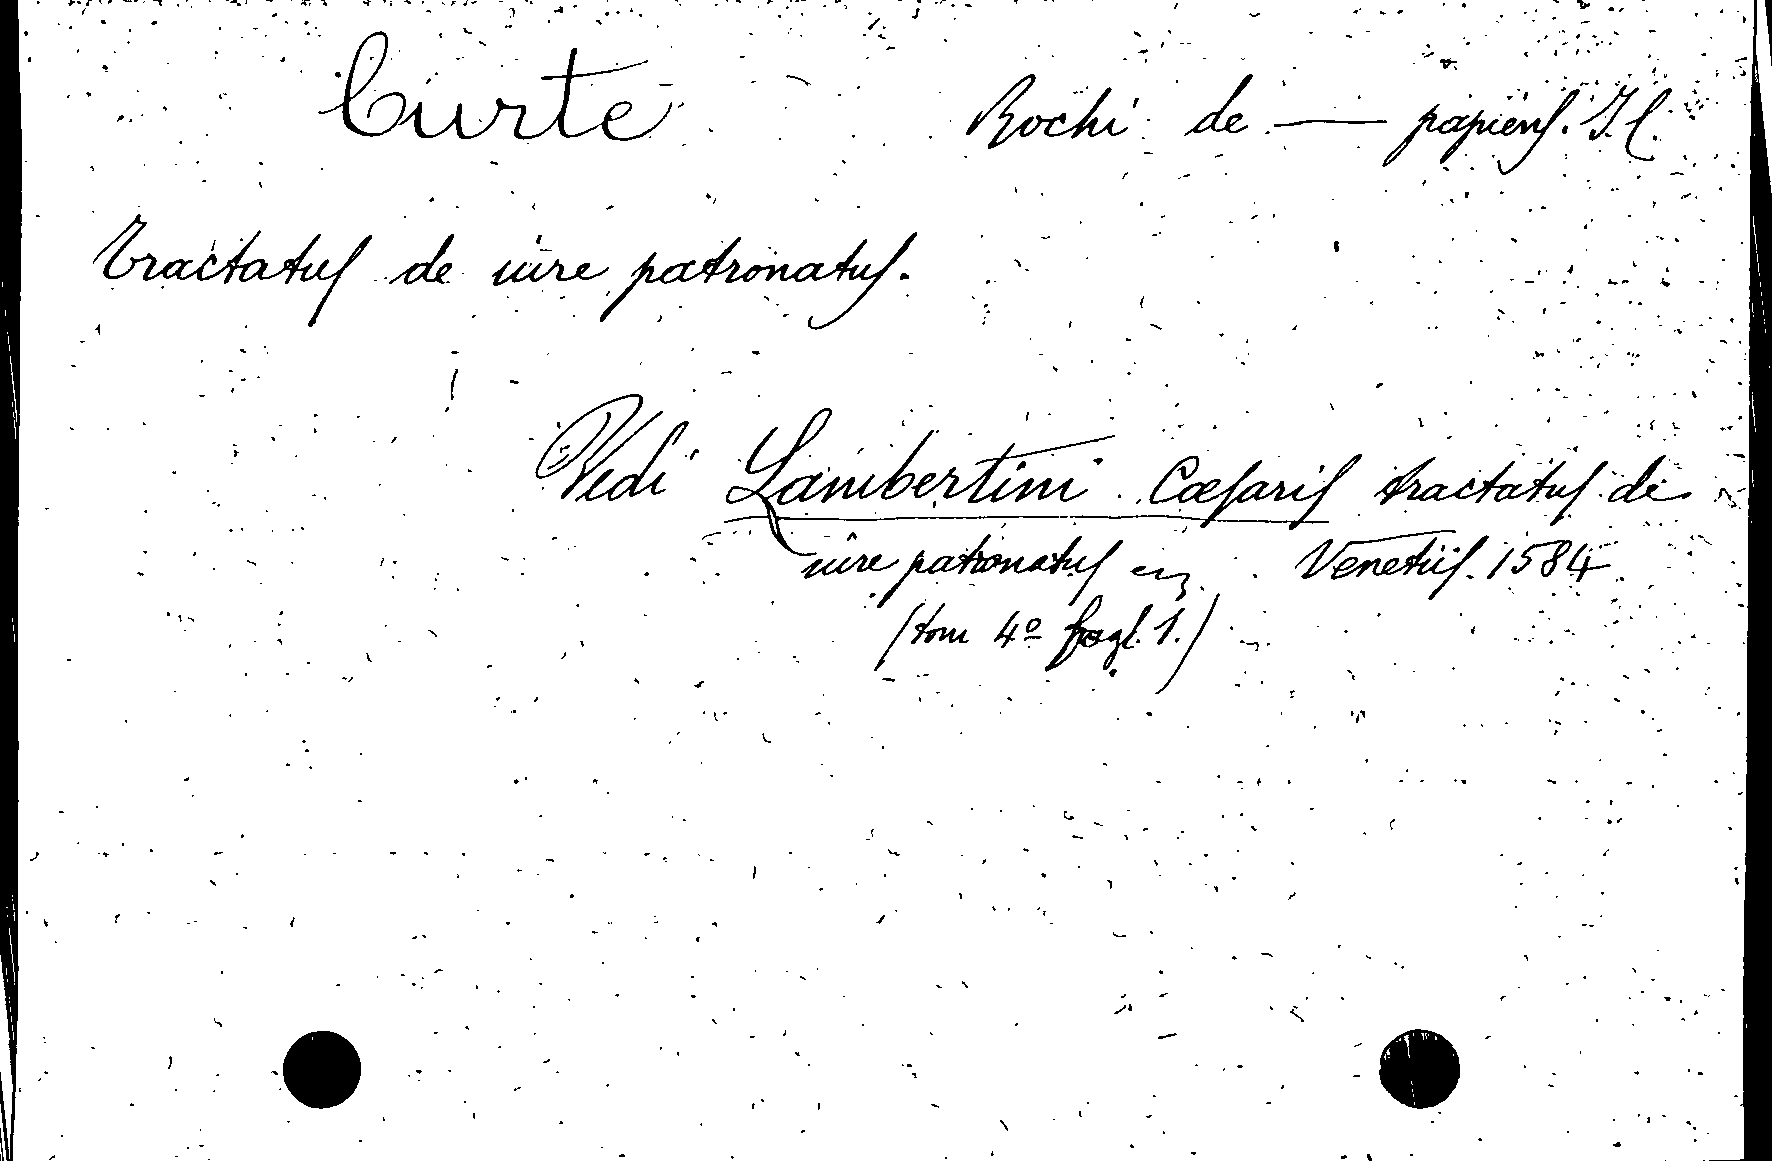 Curte Rochi de — papiens. J. C.
Tractatus de iure patronatus.
Vedi Lambertini Cæsaris tractatus de
iure patronatus Venetiis. 1584
(tom 4º fogl. 1.)